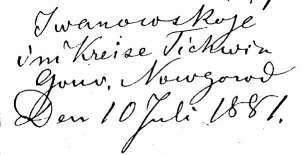 Iwanowskoje
im Kreise Tichwin
Gouv. Nowgorod
Den 10 Juli 1881.